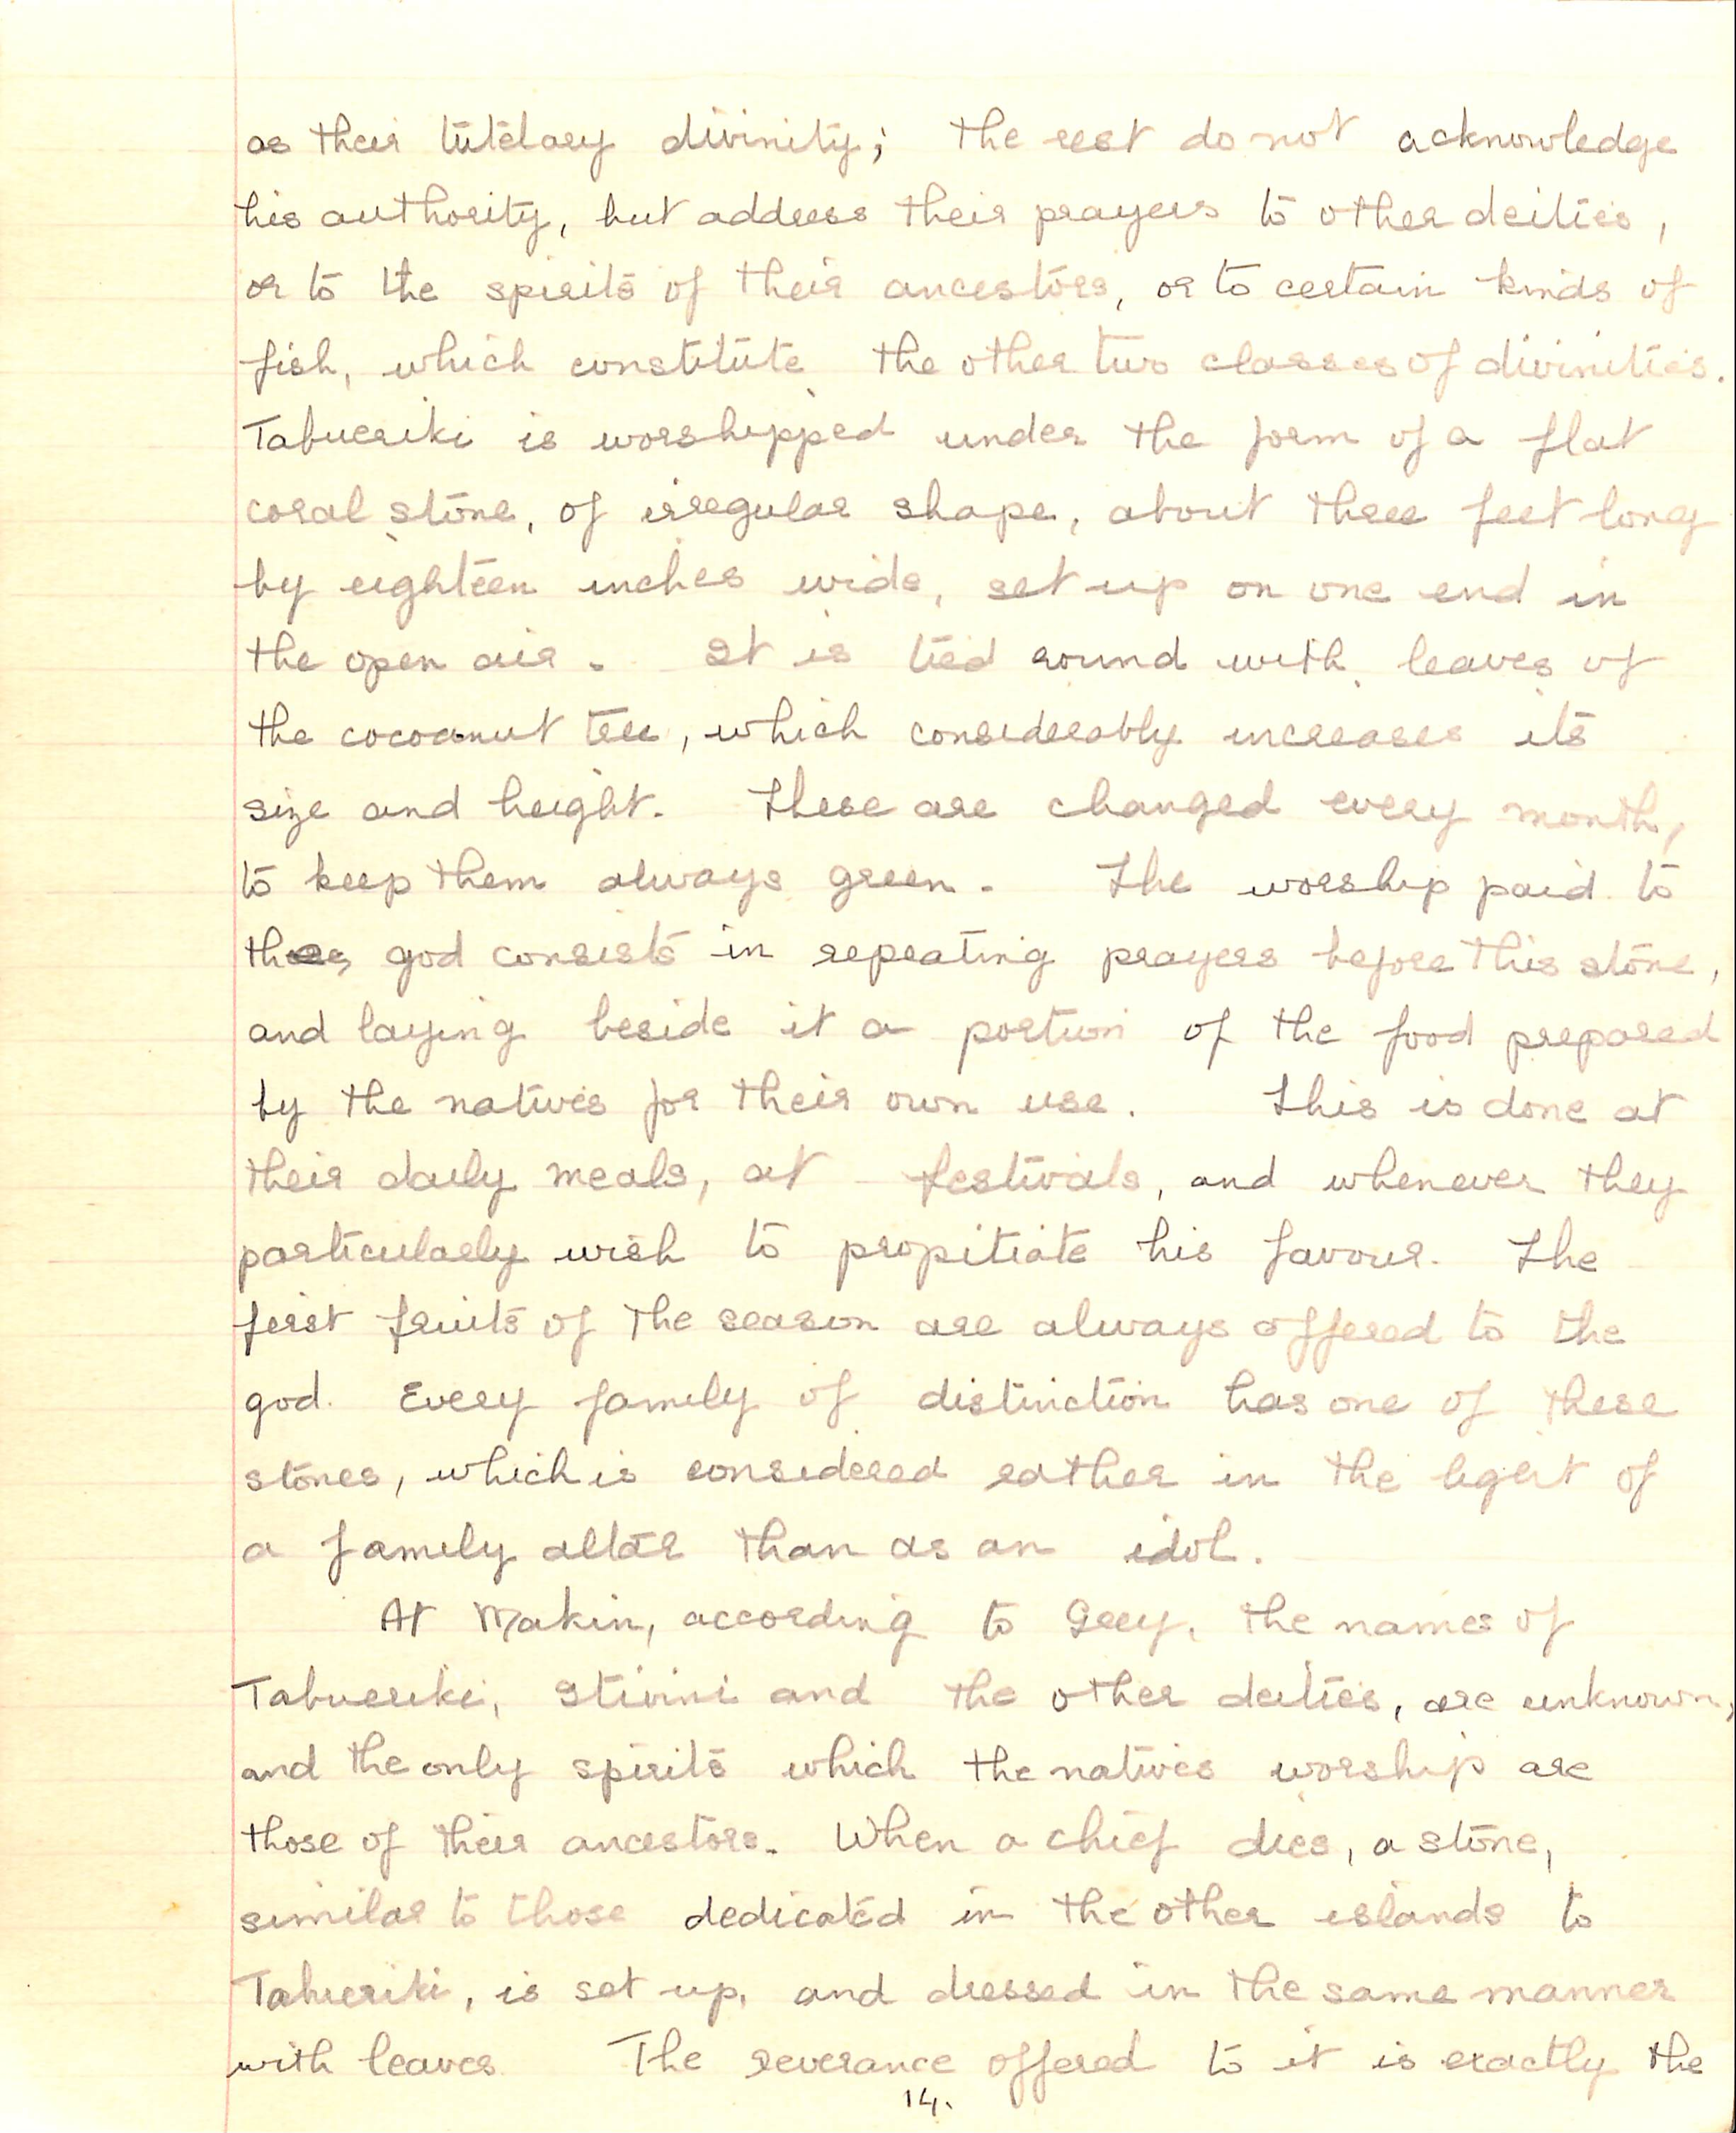 as their tutelary divinity; the rest do not acknowledge
his authority, but address their prayers to other deities,
or to the spirits of their ancestors, or to certain kinds of
fish, which constitute the other two classes of divinities.
Tabueriki is worshipped under the form of a flat
coral stone, of irregular shape, about three feet long
by eighteen inches wide, set up on one end in
the open air. It is tied round with leaves of
the cocoanut tree, which considerably increases its
size and height. These are changed every month,
to keep them always green. The worship paid to
god consists in repeating prayers before this stone,
and laying beside it a portion of the food prepared
by the natives for their own use. This is done at
their daily meals, at festivals, and whenever they
particularly wish to propitiate his favour. The
first fruits of the season are always offered to the
god. Every family of distinction has one of these
stones, which is considered rather in the light of
a family altar than as an idol.
At Makin, according to Grey, the names of
Tabueriki, Itivini and the other deities, are unknown,
and the only spirits which the natives worship are
those of their ancestors. When a chief dies, a stone,
similar to those dedicated in the other islands to
Tabueriki, is set up, and dressed in the same manner
with leaves. The reverance offered to it is exactly the
14.